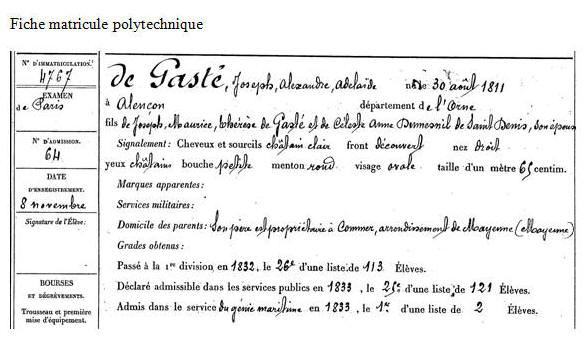 Fiche matricule polytechnique
N° D'IMMATRICULATION.
4767
EXAMEN
de Paris
N° D'ADMISSION.
64
DATE
D'ENREGISTREMENT.
8 novembre
Signature de l'Élève:
BOURSES
ET DÉGRÈVEMENTS.
Trousseau et première
mise d'équipement.
de Gasté, Joseph, Alexandre, Adélaïde né le 30 août 1811
à Alençon département de l'Orne
fils de Joseph, Maurice, Thérèse de Gasté et de Céleste Anne Dumesnil de Saint Denis, son épouse
Signalement: Cheveux et sourcils châtain clair front découvert nez droit
yeux châtains bouche petite menton rond visage ovale taille d'un mètre 65 centim.
Marques apparentes:
Services militaires:
Domicile des parents: Son père est propriétaire à Commer, arrondissement de Mayenne (Mayenne)
Grades obtenus:
Passé à la 1re division en 1832, le 26e d'une liste de 113 Élèves.
Déclaré admissible dans les services publics en 1833, le 25e d'une liste de 121 Élèves.
Admis dans le service du génie maritime en 1833, le 1er d'une liste de 2 Élèves.